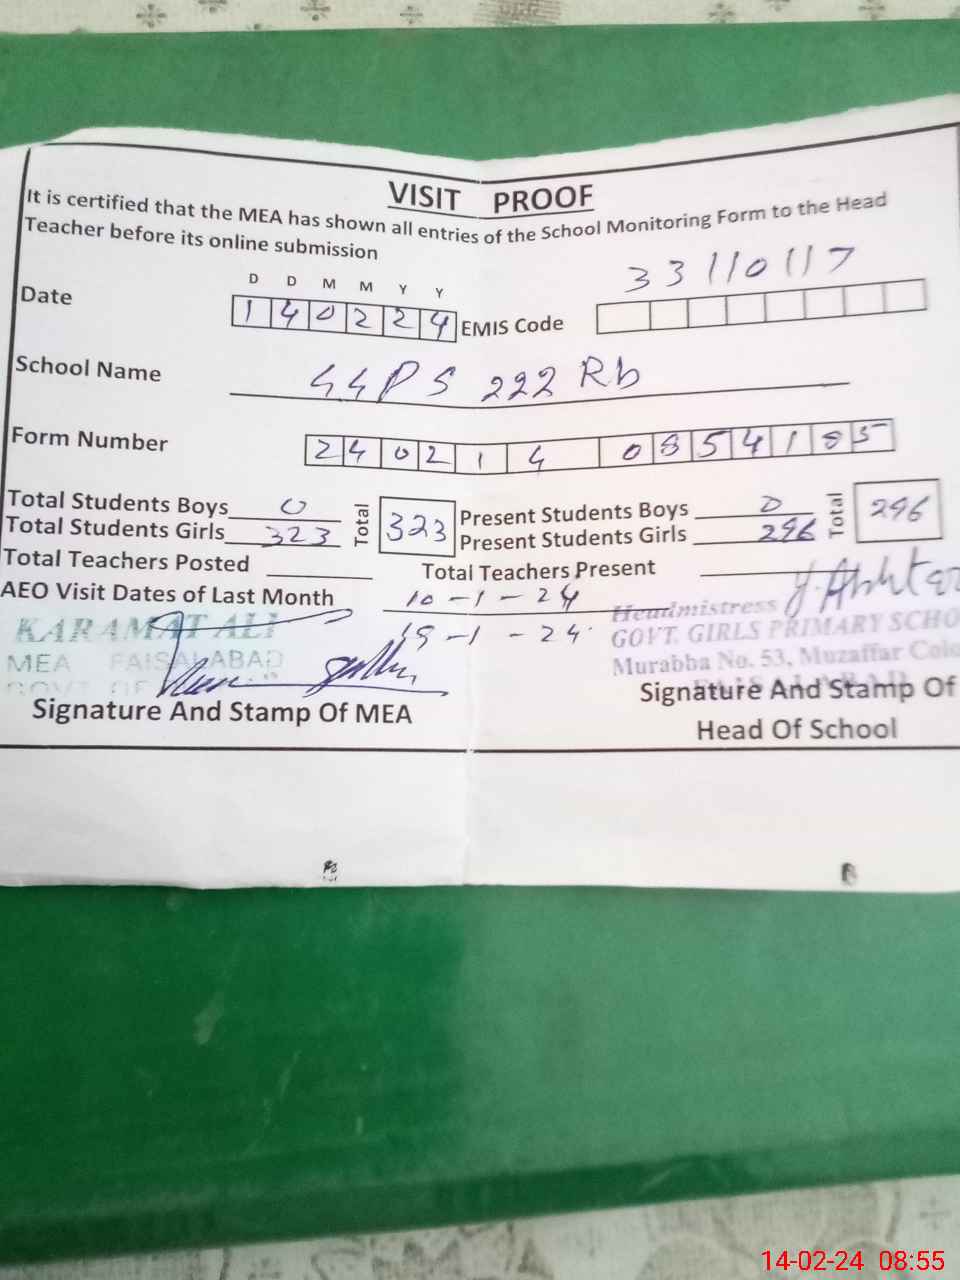 VISIT PROOF
It is certified that the MEA has shown all entries of the School Monitoring Form to the Head
Teacher before its online submission
33110117
D D M M Y Y
Date 140224 EMIS Code
School Name GGPS 222 Rb
Form Number 240214 0854185
Total Students Boys 0 Total 323 Present Students Boys 0 Total 296
Total Students Girls 323 Present Students Girls 296
Total Teachers Posted Total Teachers Present
AEO Visit Dates of Last Month 10-1-24
19-1-24
KARAMAT ALI Headmistress
MEA FAISALABAD GOVT. GIRLS PRIMARY SCHO
GOVT OF Murabba No. 53, Muzaffar Colo
Signature And Stamp Of MEA Signature And Stamp Of
Head Of School
14-02-24 08:55